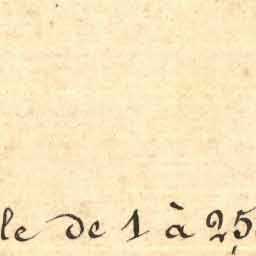 le de 1 à 25